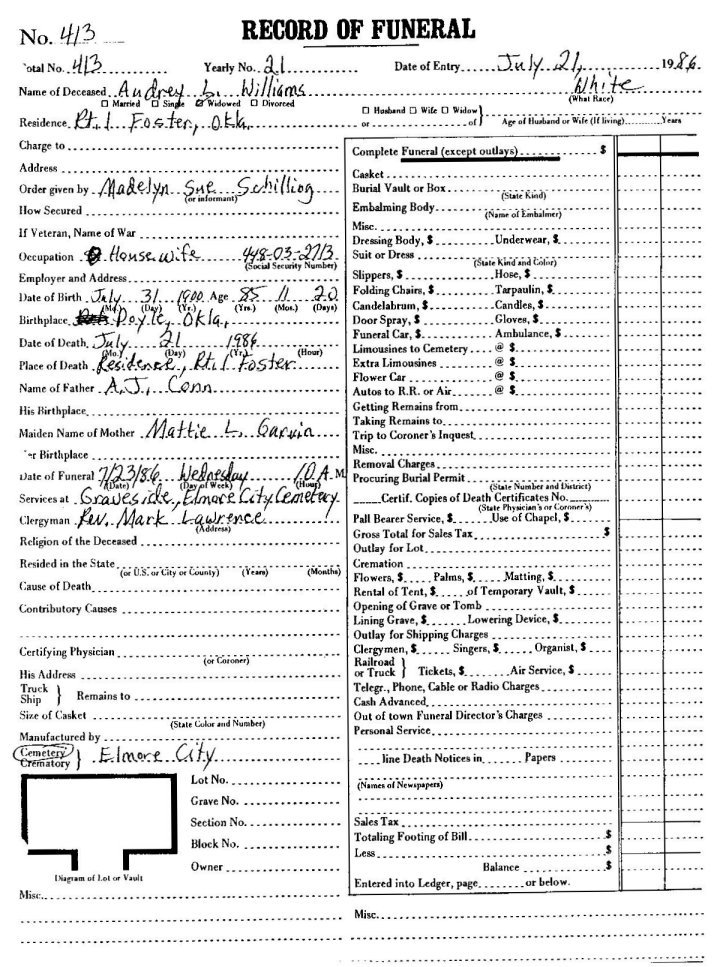 No. 413
RECORD OF FUNERAL
Total No. 413 Yearly No. 21 Date of Entry July 21, 1986
Name of Deceased Audrey L. Williams White
(What Race)
Married Single Widowed Divorced
Residence Rt. 1 Foster, Okla.
Husband Wife Widow
or of Age of Husband or Wife (If living) Years
Charge to
Address
Order given by Madelyn Sue Schilling
(or informant)
How Secured
If Veteran, Name of War
Occupation Housewife 448-03-2713
(Social Security Number)
Employer and Address
Date of Birth July 31 1900 Age 85 11 20
(Mo.) (Day) (Yr.) (Yrs.) (Mos.) (Days)
Birthplace Doyle, Okla.,
Date of Death July 21 1986
(Mo.) (Day) (Yr.) (Hour)
Place of Death Residence, Rt. 1 Foster
Name of Father A.J. Conn
His Birthplace
Maiden Name of Mother Mattie L. Garvin
er Birthplace
Date of Funeral 7/23/86 Wednesday 10 A.M
(Date) (Day of Week) (Hour)
Services at Graveside, Elmore City Cemetery
Clergyman Rev. Mark Lawrence
(Address)
Religion of the Deceased
Resided in the State
(or U.S. or City or County) (Years) (Months)
Cause of Death
Contributory Causes
Certifying Physician
(or Coroner)
His Address
Truck
Ship } Remains to
Size of Casket
(State Color and Number)
Manufactured by
Cemetery
Crematory } Elmore City
Lot No.
Grave No.
Section No.
Block No.
Owner
Diagram of Lot or Vault
Misc.
Complete Funeral (except outlays) $
Casket
Burial Vault or Box
(State Kind)
Embalming Body
(Name of Embalmer)
Misc.
Dressing Body, $ Underwear, $
Suit or Dress
(State Kind and Color)
Slippers, $ Hose, $
Folding Chairs, $ Tarpaulin, $
Candelabrum, $ Candles, $
Door Spray, $ Gloves, $
Funeral Car, $ Ambulance, $
Limousines to Cemetery @ $
Extra Limousines @ $
Flower Car @ $
Autos to R.R. or Air @ $
Getting Remains from
Taking Remains to
Trip to Coroner's Inquest
Misc.
Removal Charges
Procuring Burial Permit
(State Number and District)
Certif. Copies of Death Certificates No.
(State Physician's or Coroner's)
Pall Bearer Service, $ Use of Chapel, $
Gross Total for Sales Tax $
Outlay for Lot
Cremation
Flowers, $ Palms, $ Matting, $
Rental of Tent, $ of Temporary Vault, $
Opening of Grave or Tomb
Lining Grave, $ Lowering Device, $
Outlay for Shipping Charges
Clergymen, $ Singers, $ Organist, $
Railroad
or Truck } Tickets, $ Air Service, $
Telegr., Phone, Cable or Radio Charges
Cash Advanced
Out of town Funeral Director's Charges
Personal Service
line Death Notices in Papers
(Names of Newspapers)
Sales Tax
Totaling Footing of Bill $
Less $
Balance $
Entered into Ledger, page or below.
Misc.